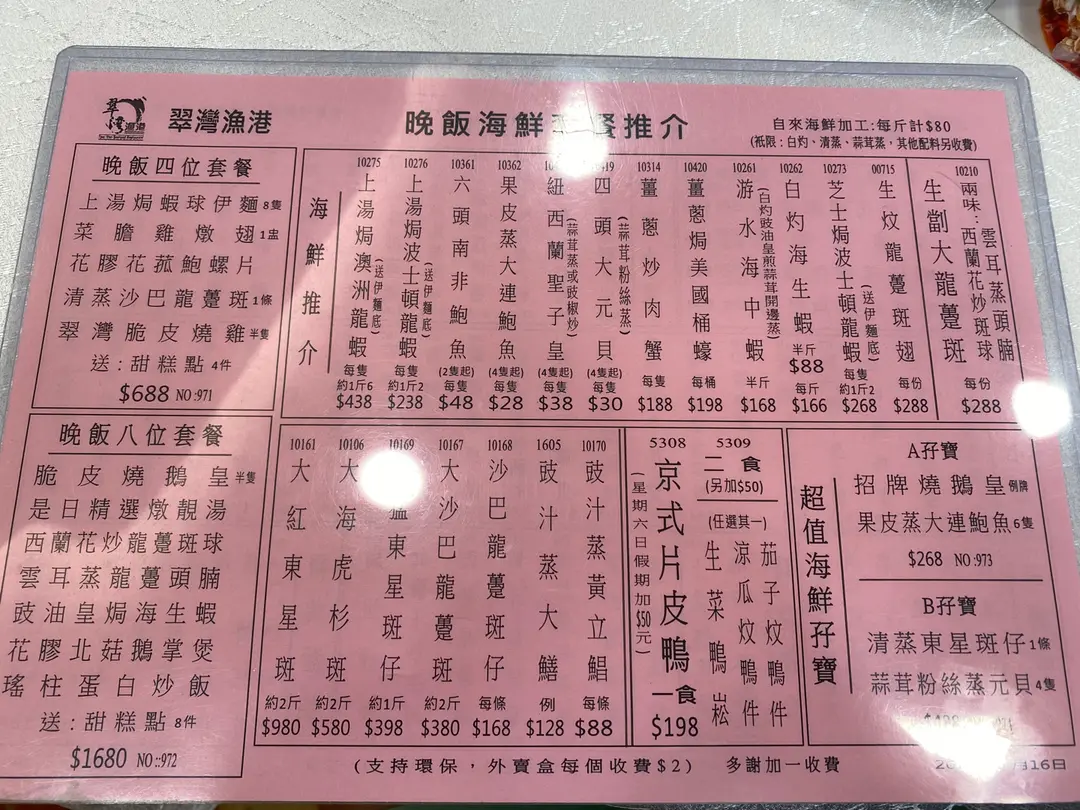 翠灣漁港
晚飯海鮮套餐推介
自來海鮮加工:每斤計$80
(祇限:白灼、清蒸、蒜茸蒸,其他配料另收費)
晚飯四位套餐
上湯焗蝦球伊麵8隻
菜膽雞燉翅1盅
花膠花菰鮑螺片
清蒸沙巴龍躉斑1條
翠灣脆皮燒雞半隻
送:甜糕點4件
$688 NO:971
海鮮推介
10275 上湯焗澳洲龍蝦(送伊麵底) 每隻 約1斤6 $438
10276 上湯焗波士頓龍蝦(送伊麵底) 每隻 約1斤2 $238
10361 六頭南非鮑魚 (2隻起) 每隻 $48
10362 果皮蒸大連鮑魚 (4隻起) 每隻 $28
紐西蘭聖子皇(蒜茸蒸或豉椒炒) (4隻起) 每隻 $38
四頭大元貝(蒜茸粉絲蒸) (4隻起) 每隻 $30
10314 薑蔥炒肉蟹 每隻 $188
10420 薑蔥焗美國桶蠔 每桶 $198
10261 游水海中蝦(白灼豉油皇煎蒜茸開邊蒸) 半斤 $168
10262 白灼海生蝦 半斤 $88 每斤 $166
10273 芝士焗波士頓龍蝦(送伊麵底) 每隻 約1斤2 $268
00715 生炆龍躉斑翅 每份 $288
10210 生劏大龍躉斑 兩味:雲耳蒸頭腩 西蘭花炒斑球 每份 $288
晚飯八位套餐
脆皮燒鵝皇半隻
是日精選燉靚湯
西蘭花炒龍躉斑球
雲耳蒸龍躉頭腩
豉油皇焗海生蝦
花膠北菇鵝掌煲
瑤柱蛋白炒飯
送:甜糕點8件
$1680 NO::972
10161 大紅東星斑 約2斤 $980
10106 大海虎杉斑 約2斤 $580
10169 東星斑仔 約1斤 $398
10167 大沙巴龍躉斑 約2斤 $380
10168 沙巴龍躉斑仔 每條 $168
1605 豉汁蒸大鱔 例 $128
10170 豉汁蒸黃立鯧 每條 $88
5308 京式片皮鴨 一食 $198
(星期六日假期加$50元)
5309 二食
(另加$50)
(任選其一)
生菜鴨崧
涼瓜炆鴨件
茄子炆鴨件
超值海鮮孖寶
A孖寶
招牌燒鵝皇例牌
果皮蒸大連鮑魚6隻
$268 NO:973
B孖寶
清蒸東星斑仔1條
蒜茸粉絲蒸元貝4隻
(支持環保,外賣盒每個收費$2)
多謝加一收費
月16日